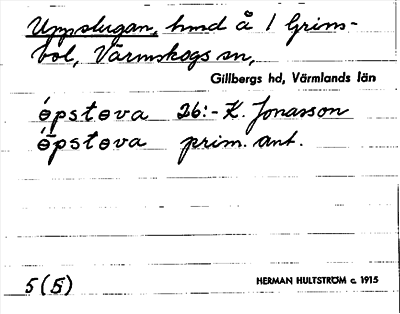 Uppstugan, hmd å 1 Grims-
bol, Värmskogs sn,
Gillbergs hd, Värmlands län
òpstɵva 26:- K. Jonasson
ɵ̀pstɵva prim. ant.
5(5) HERMAN HULTSTRÖM c. 1915